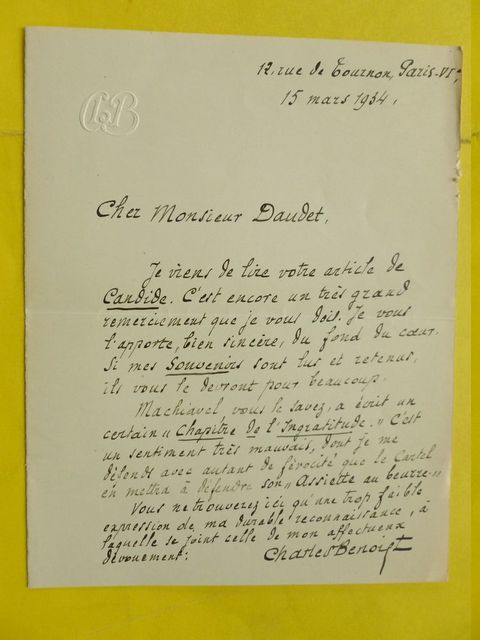 12, rue de Tournon, Paris-VI⁹,
15 mars 1934.
CB
Cher Monsieur Daudet,
Je viens de lire votre article de
Candide. C'est encore un très grand
remerciement que je vous dois. Je vous
l'apporte, bien sincère, du fond du cœur.
Si mes Souvenirs sont lus et retenus,
ils vous le devront pour beaucoup.
Machiavel, vous le savez, a écrit un
certain « Chapitre de l'Ingratitude. » C'est
un sentiment très mauvais, dont je me
défends avec autant de férocité que le Cartel
en mettra à défendre son « Assiette au beurre. »
Vous ne trouverez ici qu'une trop faible
expression de ma durable reconnaissance, à
laquelle se joint celle de mon affectueux
dévouement.
Charles Benoist